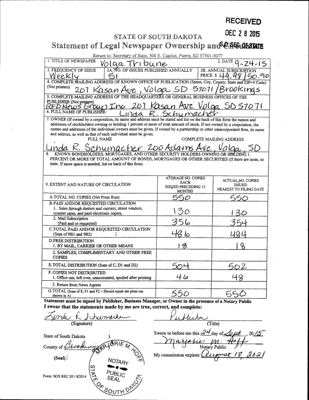 RECEIVED
DEC 28 2015
S.D. SEC. OF STATE
STATE OF SOUTH DAKOTA
Statement of Legal Newspaper Ownership and
Return to: Secretary of State, 500 E. Capitol, Pierre, SD 57501-5077
1. TITLE OF NEWSPAPER Volga Tribune
2. DATE 9-24-15
3. FREQUENCY OF ISSUE Weekly
3A. NO. OF ISSUES PUBLISHED ANNUALLY 51
3B. ANNUAL SUBSCRIPTION PRICE $ 44.98/50.90
4. COMPLETE MAILING ADDRESS OF KNOWN OFFICE OF PUBLICATION (Street, City, County, State and ZIP+4 Code)
(Not printers) 207 Kasan Ave, Volga SD 57071/Brookings
5. COMPLETE MAILING ADDRESS OF THE HEADQUARTERS OR GENERAL BUSINESS OFFICES OF THE
PUBLISHER (Not printer)
RFD News Group Inc 207 Kasan Ave Volga SD 57071
6. FULL NAME OF PUBLISHER: Linda R. Schumacher
7. OWNER (If owned by a corporation, its name and address must be stated and list on the back of this form the names and
addresses of stockholders owning or holding 1 percent or more of total amount of stock. If not owned by a corporation, the
names and addresses of the individual owners must be given. If owned by a partnership or other unincorporated firm, its name
and address, as well as that of each individual must be given.
FULL NAME COMPLETE MAILING ADDRESS
Linda R. Schumacher 200 Adams Ave. Volga, SD
8. KNOWN BONDHOLDERS, MORTGAGEES, AND OTHER SECURITY HOLDERS OWNING OR HOLDING 1
PERCENT OR MORE OF TOTAL AMOUNT OF BONDS, MORTGAGES OR OTHER SECURITIES (If there are none, so
state. If more space is needed, list on back of this form.
9. EXTENT AND NATURE OF CIRCULATION
AVERAGE NO. COPIES EACH ISSUED PRECEDING 12 MONTHS
ACTUAL NO. COPIES ISSUED NEAREST TO FILING DATE
A. TOTAL NO. COPIES (Net Press Run) 550 550
B. PAID AND/OR REQUESTED CIRCULATION
1. Sales through dealers and carriers, street vendors,
counter sales, and paid electronic copies. 130 130
2. Mail Subscription
(Paid and or requested) 356 354
C. TOTAL PAID AND/OR REQUESTED CIRCULATION
(Sum of 9B1 and 9B2) 486 484
D. FREE DISTRIBUTION
1. BY MAIL, CARRIER OR OTHER MEANS 18 18
2. SAMPLES, COMPLIMENTARY AND OTHER FREE
COPIES
E. TOTAL DISTRIBUTION (Sum of C, D1 and D2) 504 502
F. COPIES NOT DISTRIBUTED
1. Office use, left over, unaccounted, spoiled after printing 46 48
2. Return from News Agents
G. TOTAL (Sum of E, F1 and F2 - Should equal net press run
shown in A) 550 550
Statement must be signed by Publisher, Business Manager, or Owner in the presence of a Notary Public
I swear that the statements made by me are true, correct, and complete:
Linda R. Schumacher Publisher
(Signature) (Title)
State of South Dakota )
Sworn to before me this 24 day of Sept, 2015
County of Brookings
Marjorie M. Hoff
Notary Public
(Seal)
My commission expires: August 18, 2021
MARJORIE M. HOFF
NOTARY
PUBLIC
SEAL
STATE OF SOUTH DAKOTA
Form: SOS REC 051 8/2014